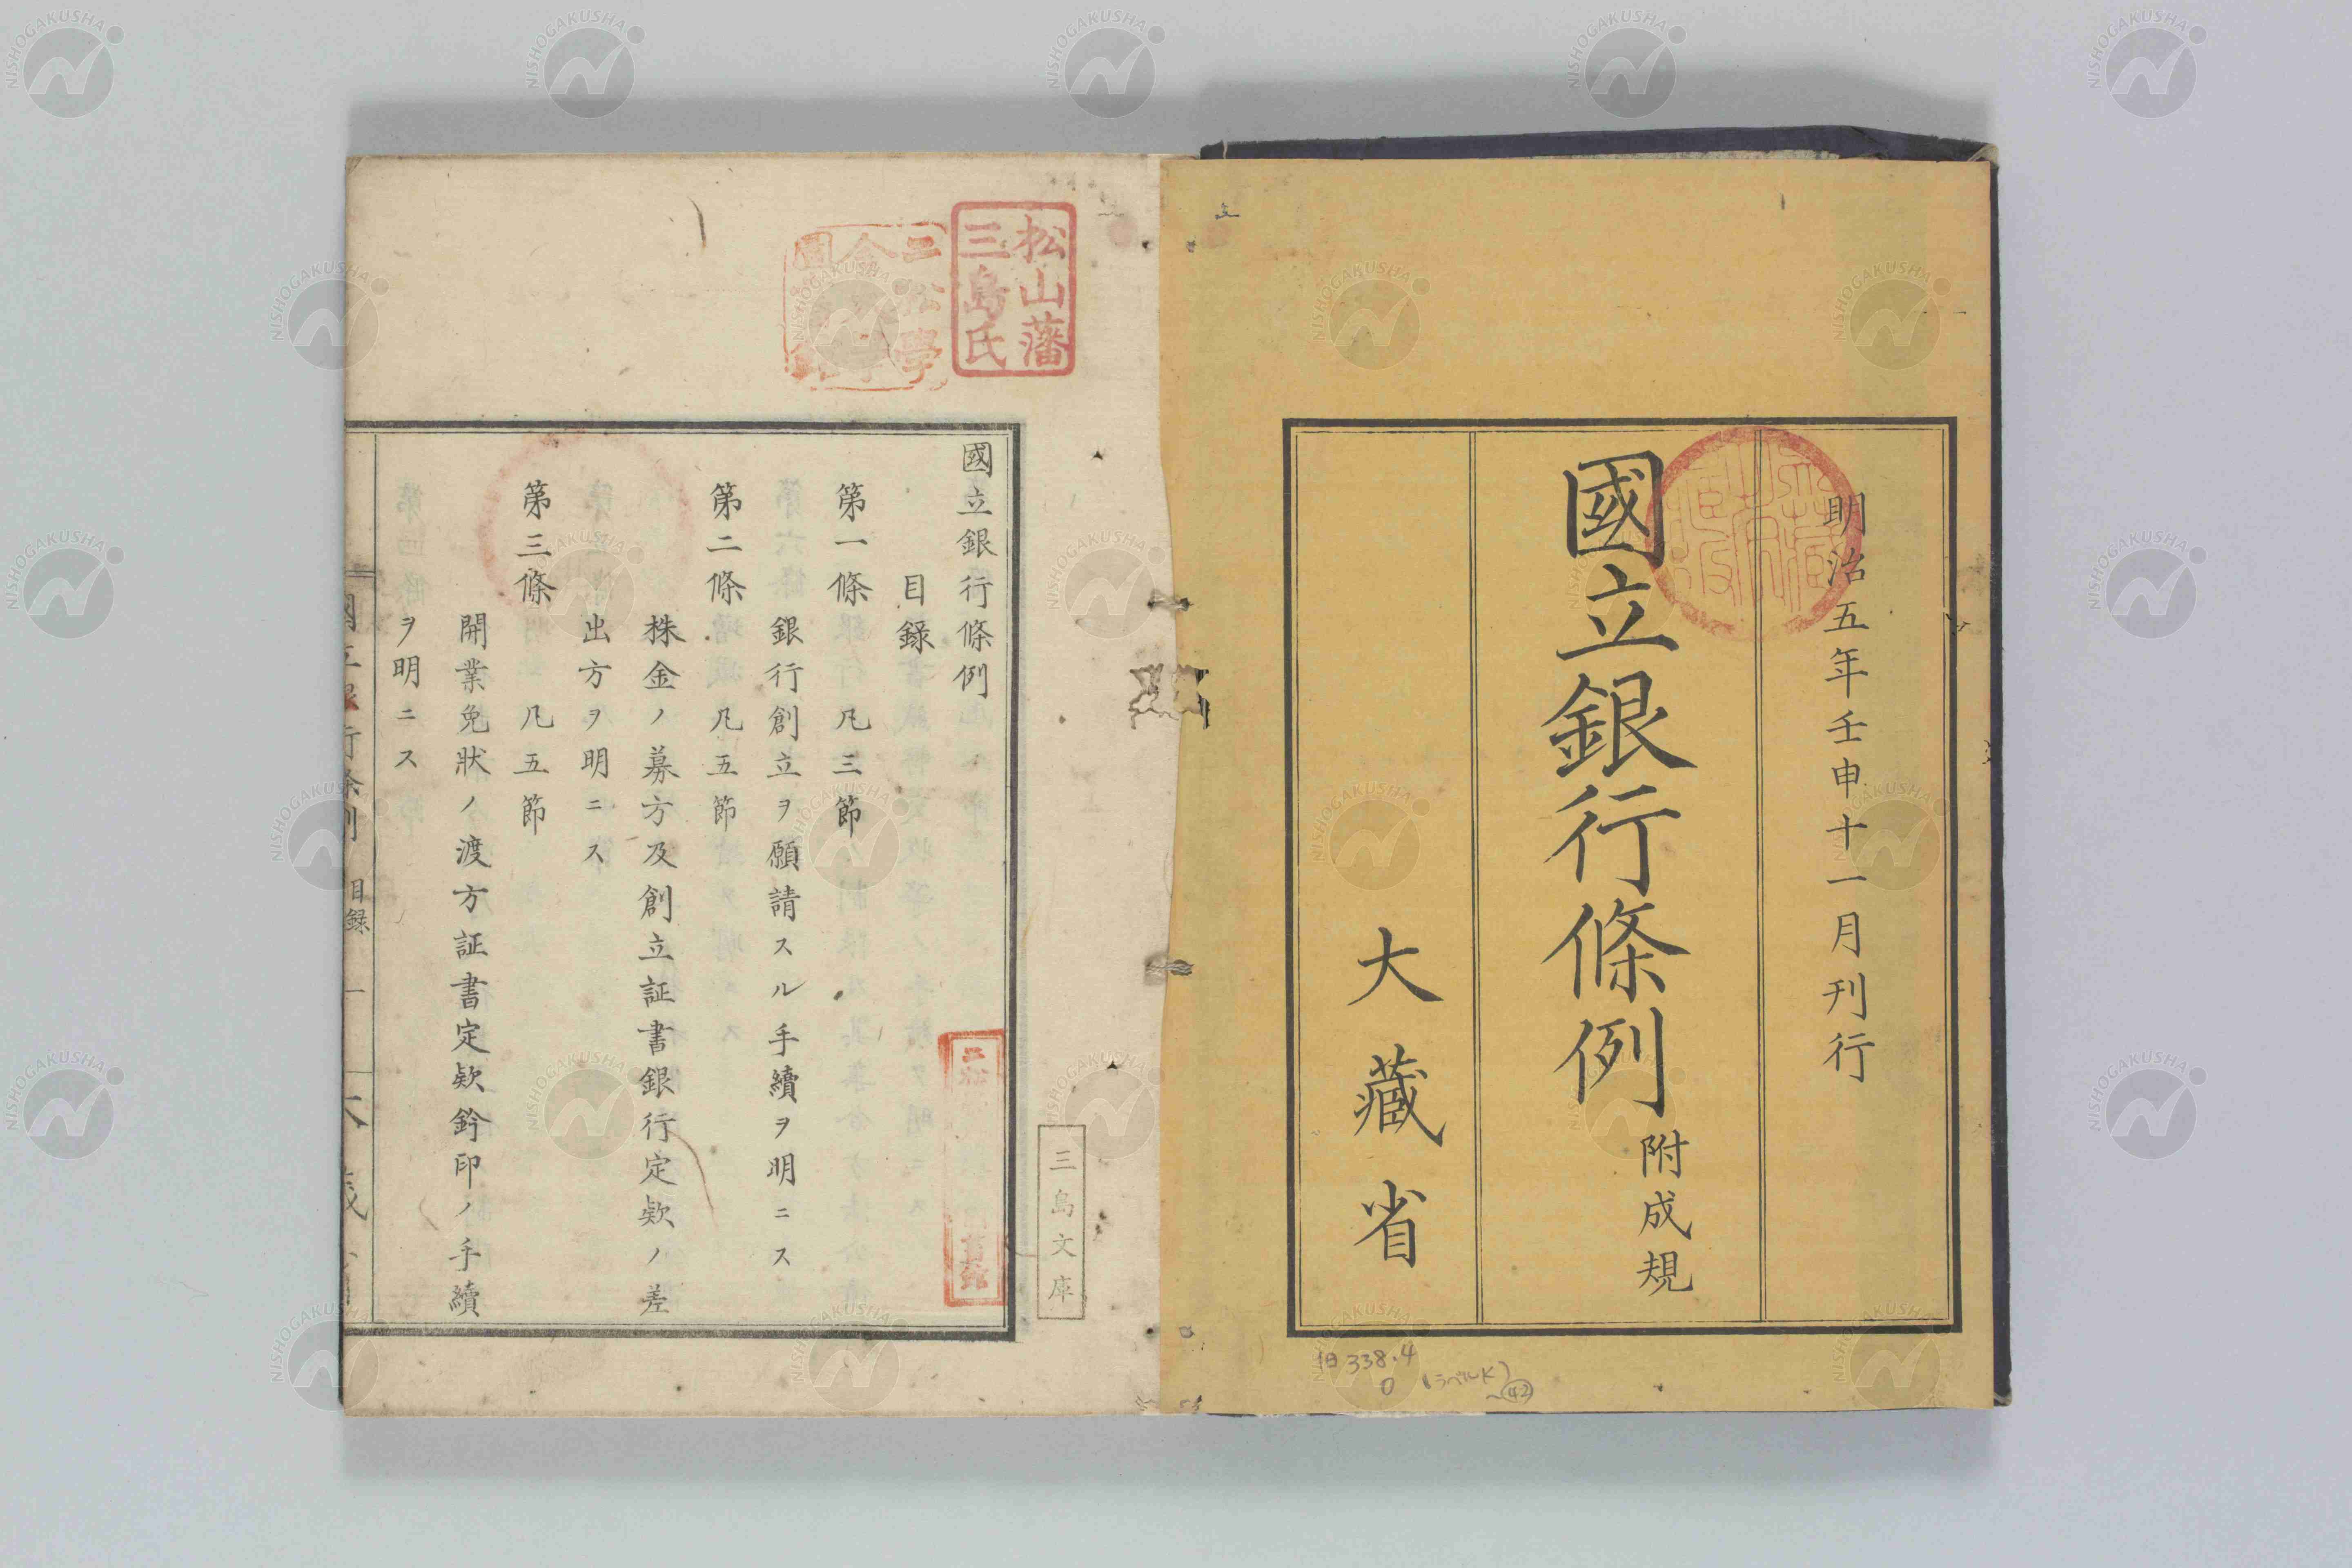 明治五年壬申十一月刊行
國立銀行條例
附成規
大藏省
旧338.4
0
(ラベルK)
~42
松山藩
三島氏
三島文庫
國立銀行條例
目録
第一條 凡三節
銀行創立ヲ願請スル手續ヲ明ニス
第二條 凡五節
株金ノ募方及創立証書銀行定欵ノ差
出方ヲ明ニス
第三條 凡五節
開業免狀ノ渡方証書定欵鈐印ノ手續
ヲ明ニス
目録 一
NISHOGAKUSHA